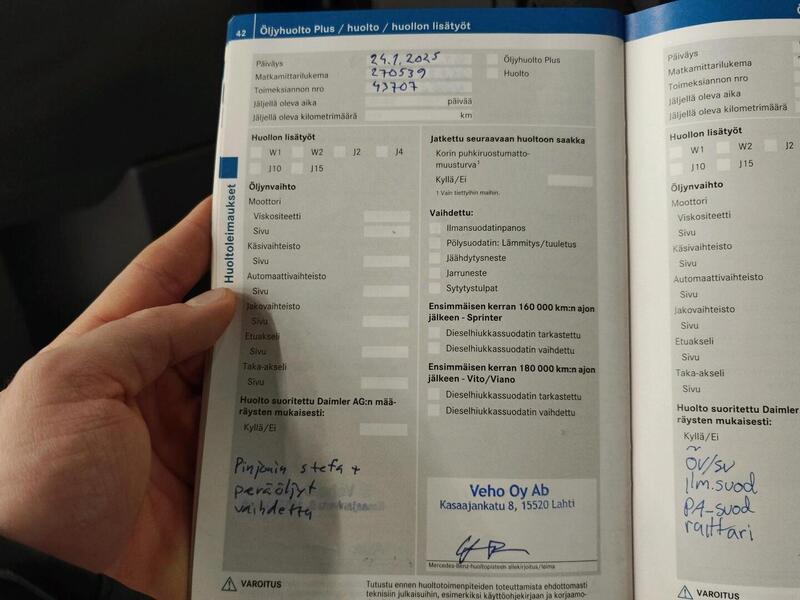 42 Öljyhuolto Plus / huolto / huollon lisätyöt
Päiväys 24.1.2025
Matkamittarilukema 270539
Toimeksiannon nro 43707
Jäljellä oleva aika päivää
Jäljellä oleva kilometrimäärä km
Öljyhuolto Plus
Huolto
Huollon lisätyöt
W1 W2 J2 J4
J10 J15
Öljynvaihto
Moottori
Viskositeetti
Sivu
Käsivaihteisto
Sivu
Automaattivaihteisto
Sivu
Jakovaihteisto
Sivu
Etuakseli
Sivu
Taka-akseli
Sivu
Huolto suoritettu Daimler AG:n mää-
räysten mukaisesti:
Kyllä/Ei
Pinjonin stefa +
peräöljyt
vaihdettu
Jatkettu seuraavaan huoltoon saakka
Korin puhkiruostumatto-
muusturva¹
Kyllä/Ei
¹ Vain tiettyihin maihin.
Vaihdettu:
Ilmansuodatinpanos
Pölysuodatin: Lämmitys/tuuletus
Jäähdytysneste
Jarruneste
Sytytystulpat
Ensimmäisen kerran 160 000 km:n ajon
jälkeen - Sprinter
Dieselhiukkassuodatin tarkastettu
Dieselhiukkassuodatin vaihdettu
Ensimmäisen kerran 180 000 km:n ajon
jälkeen - Vito/Viano
Dieselhiukkassuodatin tarkastettu
Dieselhiukkassuodatin vaihdettu
Veho Oy Ab
Kasaajankatu 8, 15520 Lahti
Mercedes-Benz-huoltopisteen allekirjoitus/leima
VAROITUS
Tutustu ennen huoltotoimenpiteiden toteuttamista ehdottomasti
teknisiin julkaisuihin, esimerkiksi käyttöohjekirjaan ja korjaamo-
Huoltoleimaukset
Päiväys
Matkamittarilukema
Toimeksiannon nro
Jäljellä oleva aika
Jäljellä oleva kilometrimäärä
Huollon lisätyöt
W1 W2 J2
J10 J15
Öljynvaihto
Moottori
Viskositeetti
Sivu
Käsivaihteisto
Sivu
Automaattivaihteisto
Sivu
Jakovaihteisto
Sivu
Etuakseli
Sivu
Taka-akseli
Sivu
Huolto suoritettu Daimler
räysten mukaisesti:
Kyllä/Ei
öv/sv
ilm.suod
PA-suod
raittari
VAROITUS